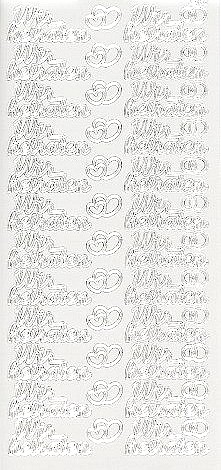 Wir Wir
heiraten heiraten
Wir Wir
heiraten heiraten
Wir Wir
heiraten heiraten
Wir Wir
heiraten heiraten
Wir Wir
heiraten heiraten
Wir Wir
heiraten heiraten
Wir Wir
heiraten heiraten
Wir Wir
heiraten heiraten
Wir Wir
heiraten heiraten
Wir Wir
heiraten heiraten
Wir Wir
heiraten heiraten
Wir Wir
heiraten heiraten